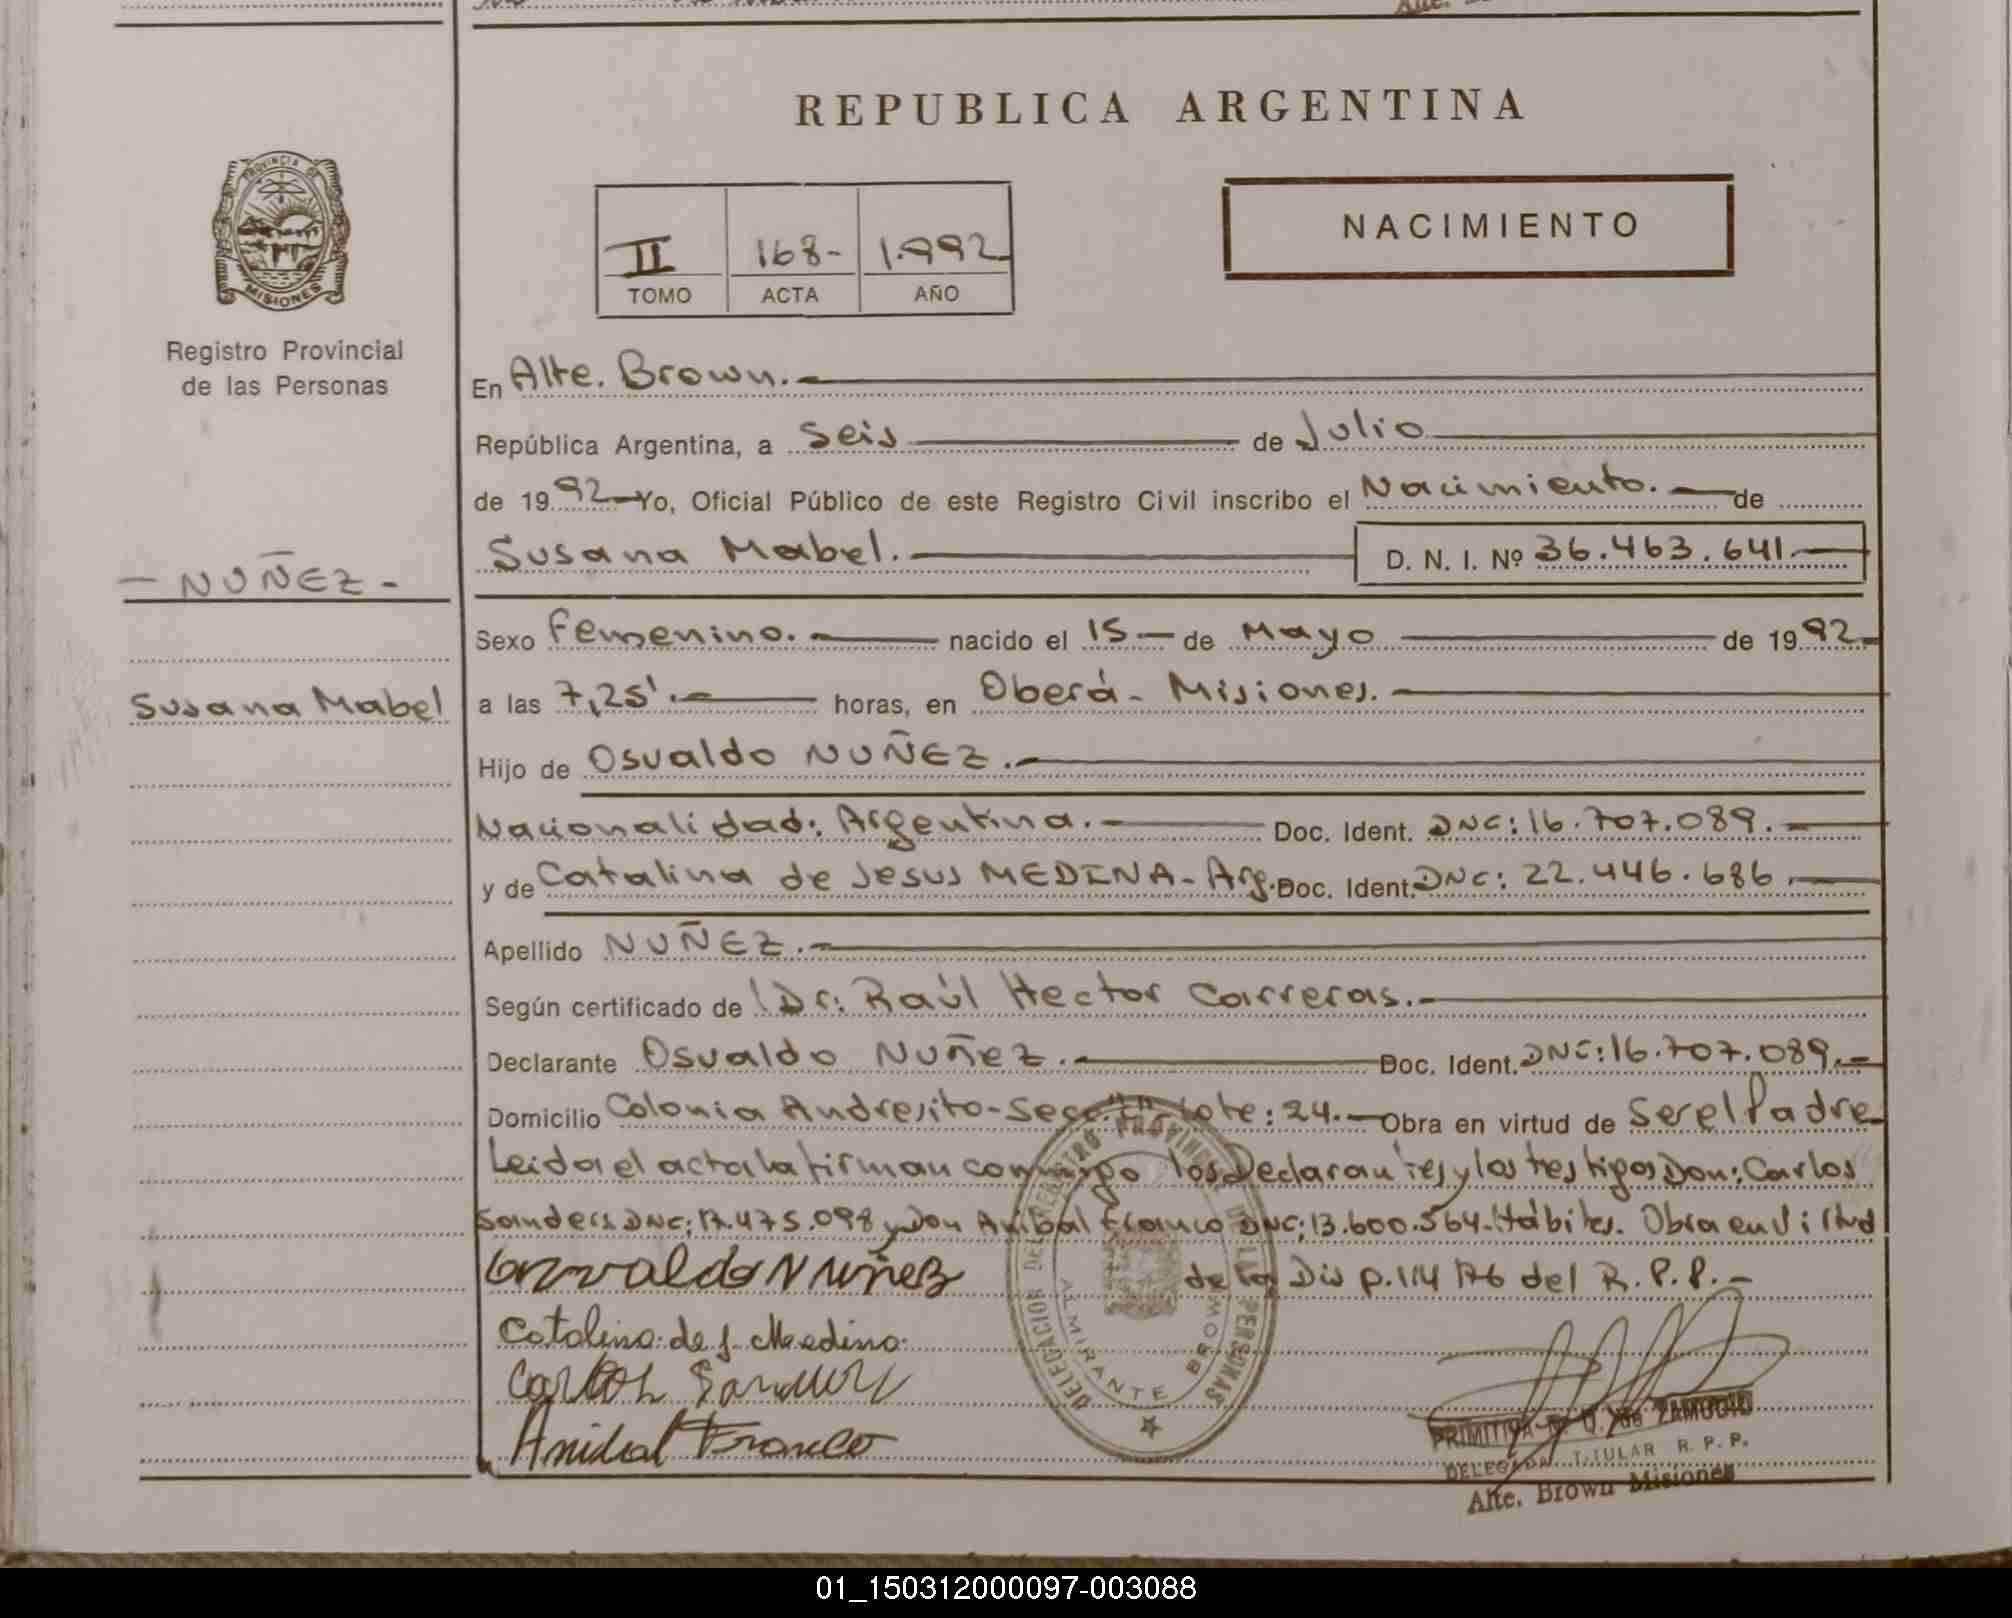 REPUBLICA ARGENTINA
PROVINCIA DE
MISIONES
Registro Provincial
de las Personas
II 168- 1.992
TOMO ACTA AÑO
NACIMIENTO
En Alte. Brown.-
República Argentina, a Seis de Julio
de 1992 Yo, Oficial Público de este Registro Civil inscribo el Nacimiento.- de
Susana Mabel.- D. N. I. Nº 36.463.641.-
- NUÑEZ -
Susana Mabel
Sexo Femenino.- nacido el 15 - de Mayo de 1992-
a las 7,25'.- horas, en Oberá - Misiones.-
Hijo de Osvaldo NUÑEZ.-
Nacionalidad: Argentina.- Doc. Ident. DNC: 16.707.089.-
y de Catalina de Jesus MEDINA - Arg. Doc. Ident. DNC: 22.446.686.-
Apellido NUÑEZ.-
Según certificado de Dr: Raúl Hector Carreras.-
Declarante Osvaldo Nuñez.- Doc. Ident. DNC: 16.707.089.-
Domicilio Colonia Andresito - Secc. Lote: 24.- Obra en virtud de Ser el Padre
Leida el acta la firman conmigo los Declarantes y los testigos Don: Carlos
Sanders DNC: 17.475.098 y Don Anibal Franco DNC: 13.600.564 - Hábiles. Obra en Virtud
de la Disp. 114/76 del R. P. P.-
Oszvaldo Nuñez
Catalina de J. Medina
Carlos Sanders
Anibal Franco
DELEGACION DEL REGISTRO PROVINCIAL DE LAS PERSONAS
ALMIRANTE BROWN
PRIMITIVA de ZAMUDIO
DELEGADA TITULAR R. P. P.
Alte. Brown Misiones
01_150312000097-003088